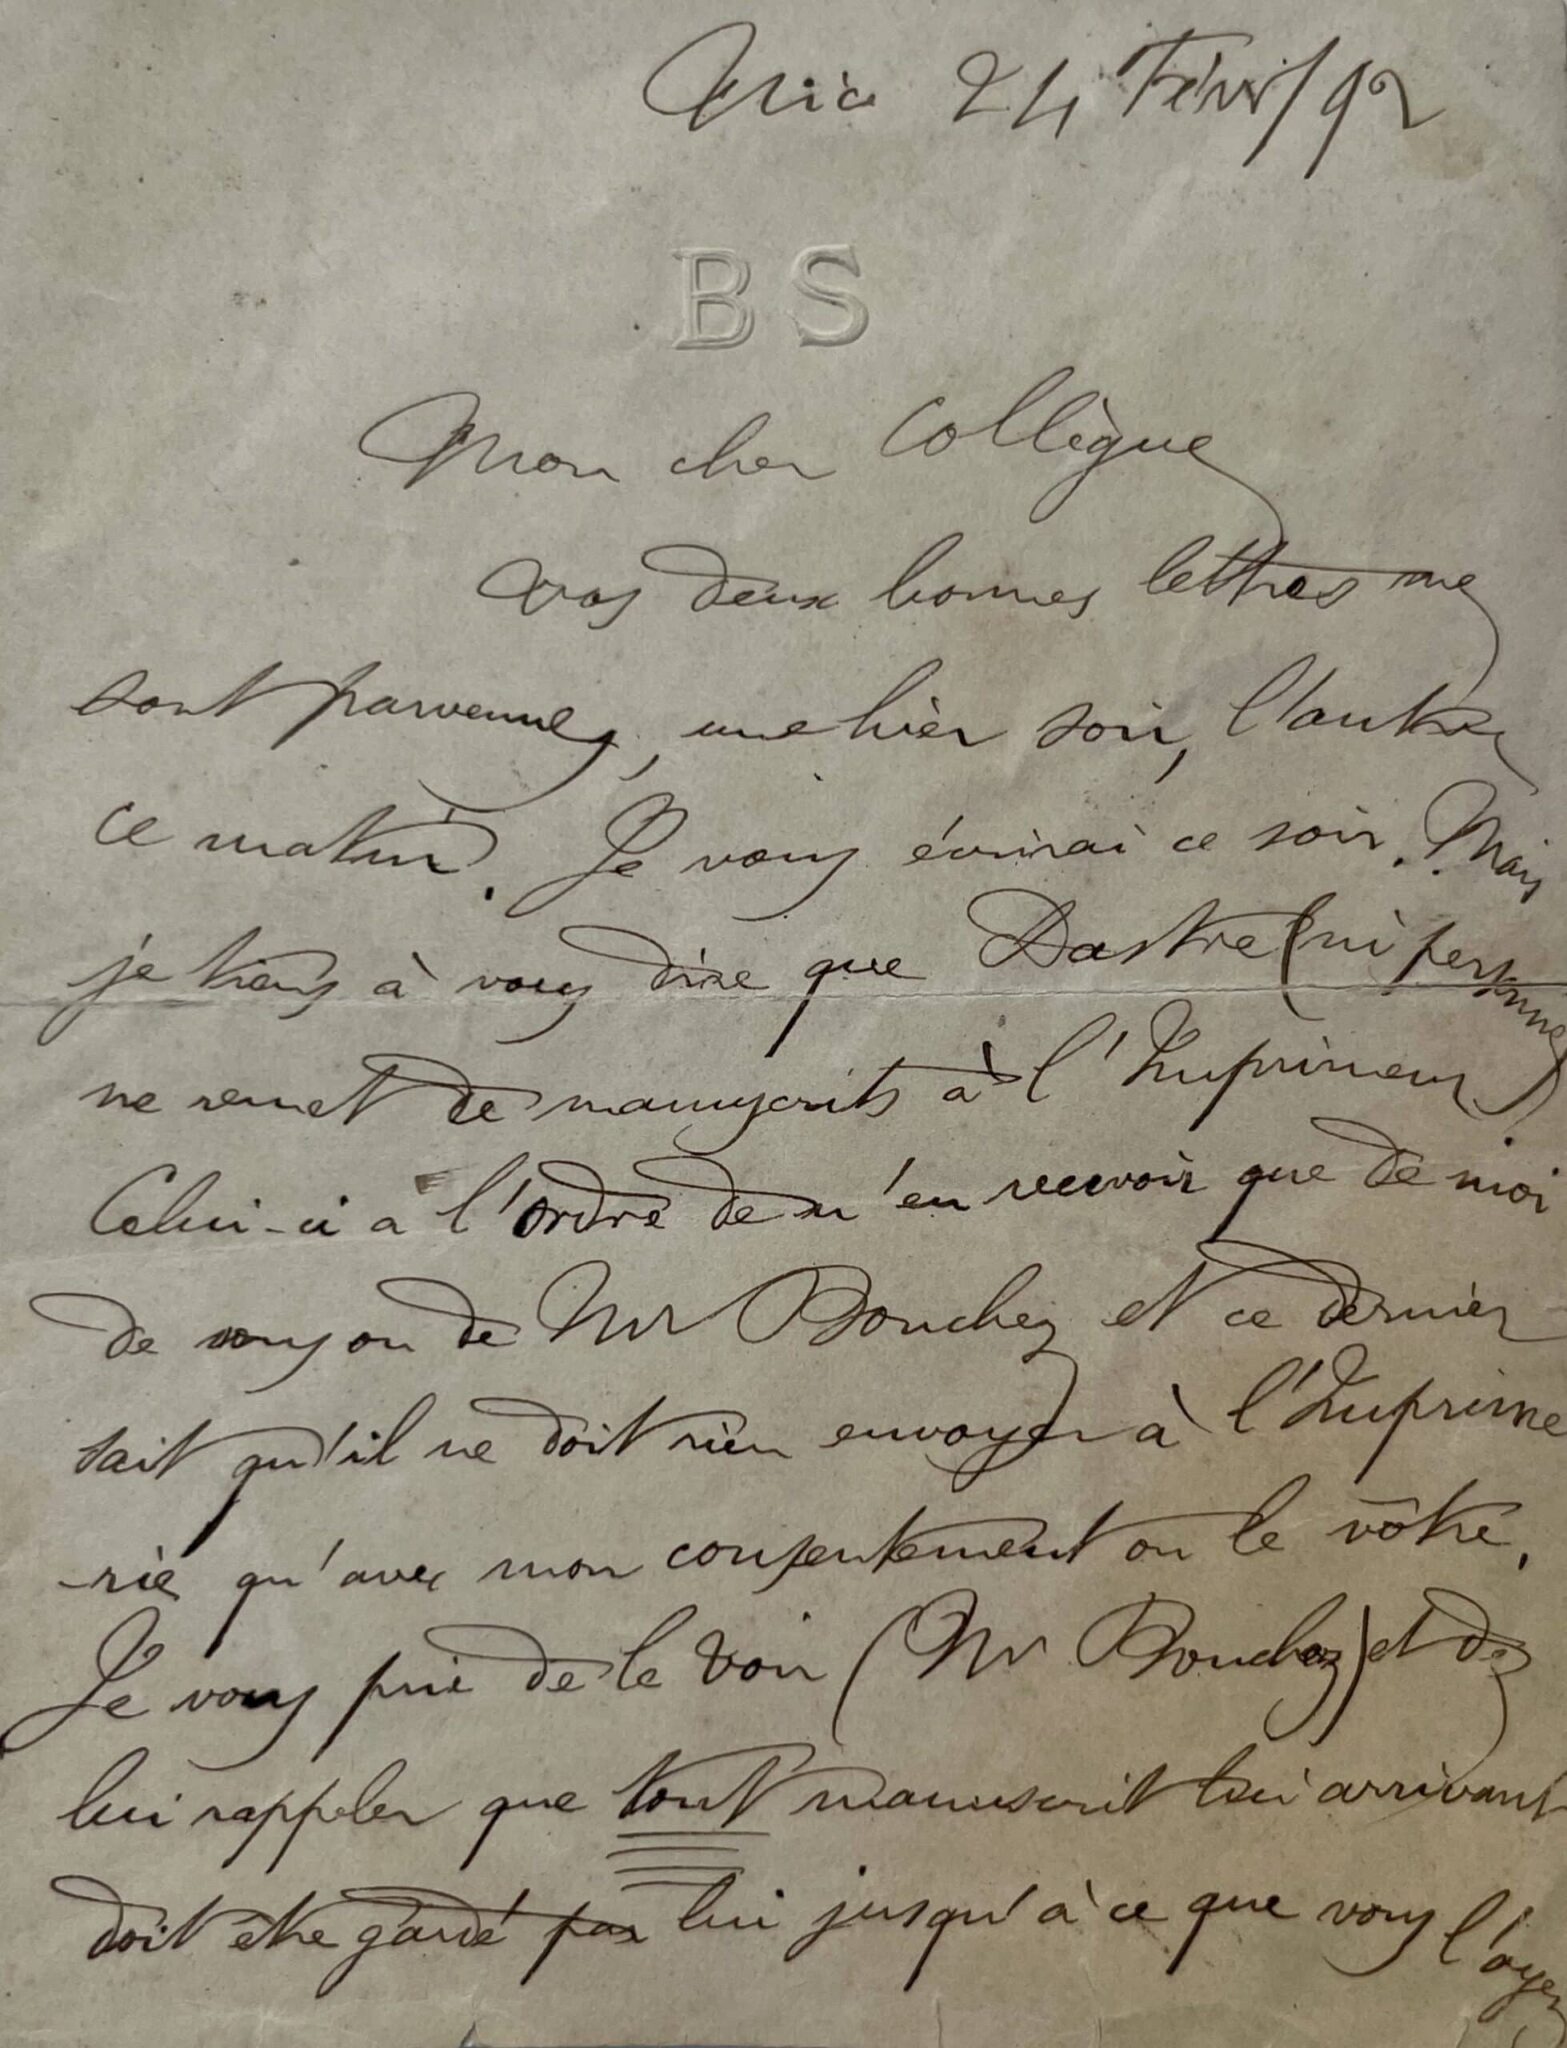 Nice 24 Févr/92
BS
Mon cher Collègue
Vos deux bonnes lettres me
sont parvenues, une hier soir, l'autre
ce matin. Je vous écrirai ce soir. Mais
je tiens à vous dire que Dastre (ni personne)
ne remet de manuscrits à l'Imprimeur
Celui-ci a l'ordre de n'en recevoir que de moi
de vous ou de Mr Bouchez et ce dernier
sait qu'il ne doit rien envoyer à l'Imprime
-rie qu'avec mon consentement ou le vôtre.
Je vous prie de le voir (Mr Bouchez) et de
lui rappeler que tout manuscrit lui arrivant
doit être gardé par lui jusqu'à ce que vous l'ayez